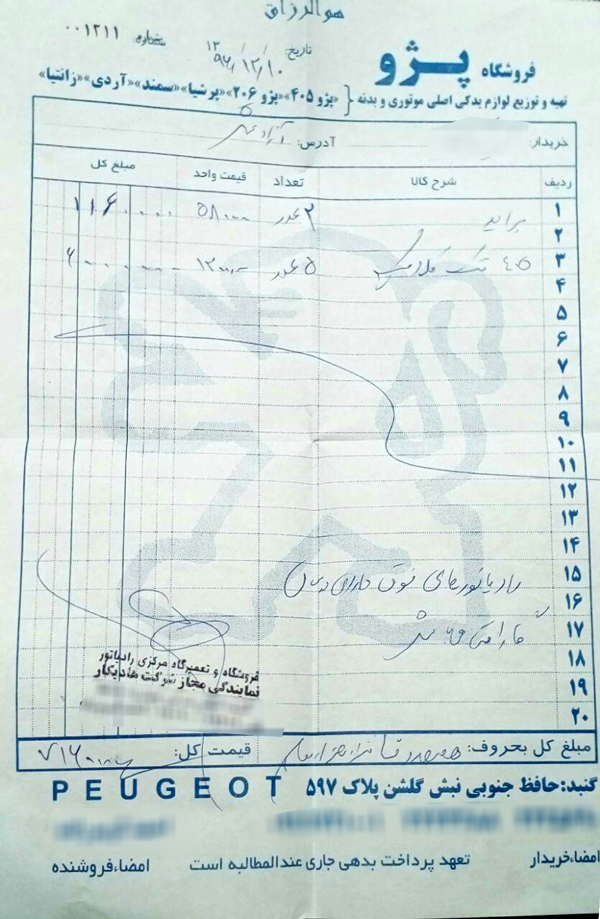 هوالرزاق
شماره ۰۰۱۲۱۱
تاریخ: ۱۳۹۶/۱۲/۱۰
فروشگاه پژو
تهیه و توزیع لوازم یدکی اصلی موتوری و بدنه {«پژو ۴۰۵» «پژو ۲۰۶» «پرشیا» «سمند» «آردی» «زانتیا»
خریدار: آدرس: آزادشهر
ردیف شرح کالا تعداد قیمت واحد مبلغ کل
۱ پراید ۲ عدد ۵۸۰۰۰۰ ۱۱۶۰۰۰۰
۲
۳ ۴۰۵ تک ۵ عدد ۱۲۰۰۰۰۰ ۶۰۰۰۰۰۰
۴
۵
۶
۷
۸
۹
۱۰
۱۱
۱۲
۱۳
۱۴
۱۵ رادیاتورهای فوق دارای
۱۶
۱۷
۱۸
۱۹
۲۰
فروشگاه و تعمیرگاه مرکزی رادیاتور
نمایندگی مجاز شرکت هادیکار
مبلغ کل بحروف: قیمت کل: ۷۱۶۰۰۰۰
گنبد: حافظ جنوبی نبش گلشن پلاک ۵۹۷ PEUGEOT
امضاءخریدار تعهد پرداخت بدهی جاری عندالمطالبه است امضاءفروشنده